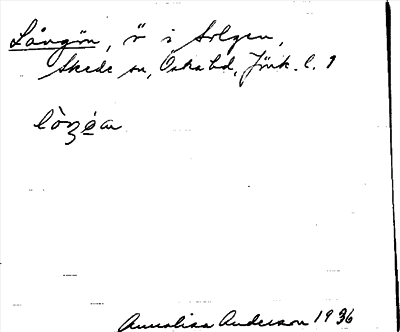 Långön, ö i Solgen,
Skede sn, Östra hd, Jönk. l.
Annalisa Anderson 1936